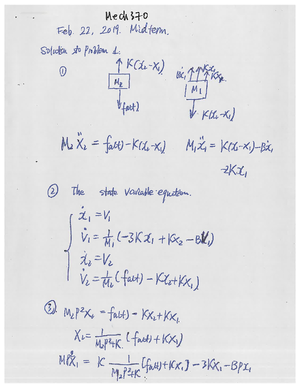 Mech 370
Feb. 22, 2019. Midterm.
Solution to problem 1.
①
K(x₂-x₁)
M₂
fa(t)
Bẋ₁ Kx₁ Kx₁
M₁
K(x₂-x₁)
M₂ẍ₂ = fa(t) - K(x₂-x₁)
M₁ẍ₁ = K(x₂-x₁) - Bẋ₁
-2Kx₁
② The state variable equation.
ẋ₁ = V₁
V̇₁ = 1/M₁ (-3Kx₁ + Kx₂ - BV₁)
ẋ₂ = V₂
V̇₂ = 1/M₂ (fa(t) - Kx₂ + Kx₁)
③ M₂P²X₂ = fa(t) - KX₂ + KX₁
X₂ = 1/(M₂P²+K) (fa(t) + KX₁)
= K 1/(M₂P²+K) [fa(t) + KX₁] - 3KX₁ - BPX₁